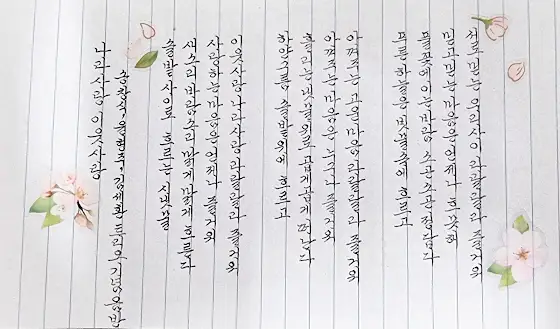 나라사랑 이웃사랑
송창식, 윤형주, 김세환 트리오 기념음반
솔밭 사이로 흐르는 시냇물
새소리 바람소리 맑게 맑게 흐른다
사랑하는 마음은 언제나 즐거워
이웃사랑 나라사랑 라랄랄라 즐거워
하얀구름 솔밭위에 흐르고
흘러는 냇물위로 곱게곱게 떠난다
아껴주는 마음은 누구나 즐거워
아껴주는 고운마음 라랄랄라 즐거워
푸른 하늘은 빗물속에 흐르고
풀꽃에 이는 바람 소곤소곤 정답다
믿고믿는 마음은 언제나 흐뭇해
서로 믿는 우리사이 라랄랄라 즐거워